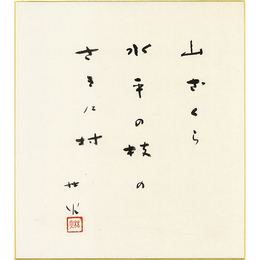 山ざくら
水平の枝の
さきに村
廿火